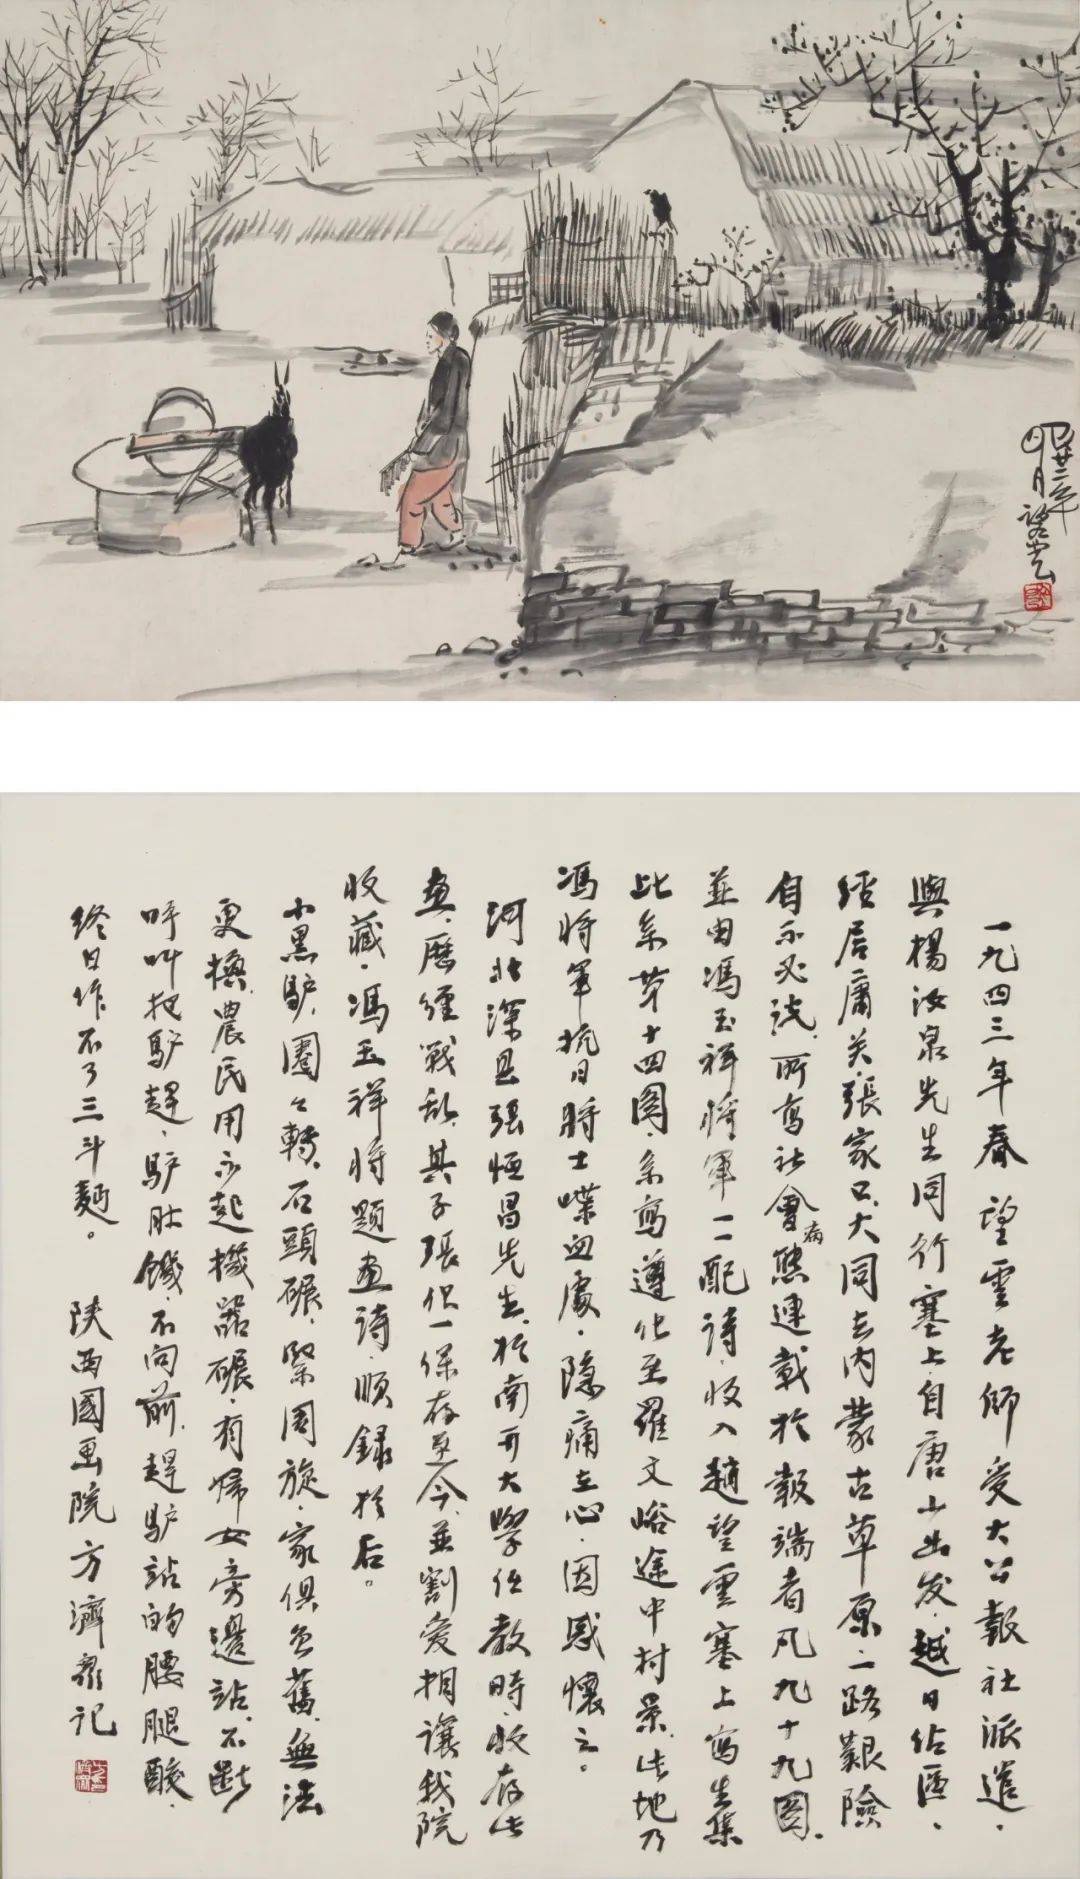 廿二年
四月望云
一九四三年春望雲老師受大公報社派遣.
與楊汝泉先生同行塞上.自唐山出发.越日佔區.
经居庸关.張家口.大同去内蒙古草原.一路艱險
自不必说.所寫社會病態連載於報端者凡九十九图.
並由馮玉祥将軍一一配詩.收入趙望雲塞上寫生集
此系第十四图.系寫遵化至羅文峪途中村景.此地乃
馮将軍抗日將士喋血處.隐痛在心.因感懷之。
河北深县强恒昌先生.於南开大學任教時.收存此
畫.歷經戰乱.其子張但一保存至今.並割爱相讓我院
收藏.馮玉祥将題畫詩.順録於后。
小黑驴.團々轉.石頭碾.緊周旋.家俱多舊.無法
更換.農民用不起機器碾.有婦女旁邊站.不斷
呼叫把驴趕.驴肚饑.不向前.趕驴站的腰腿酸.
终日作不了三斗麵。 陕西國画院方濟眾记